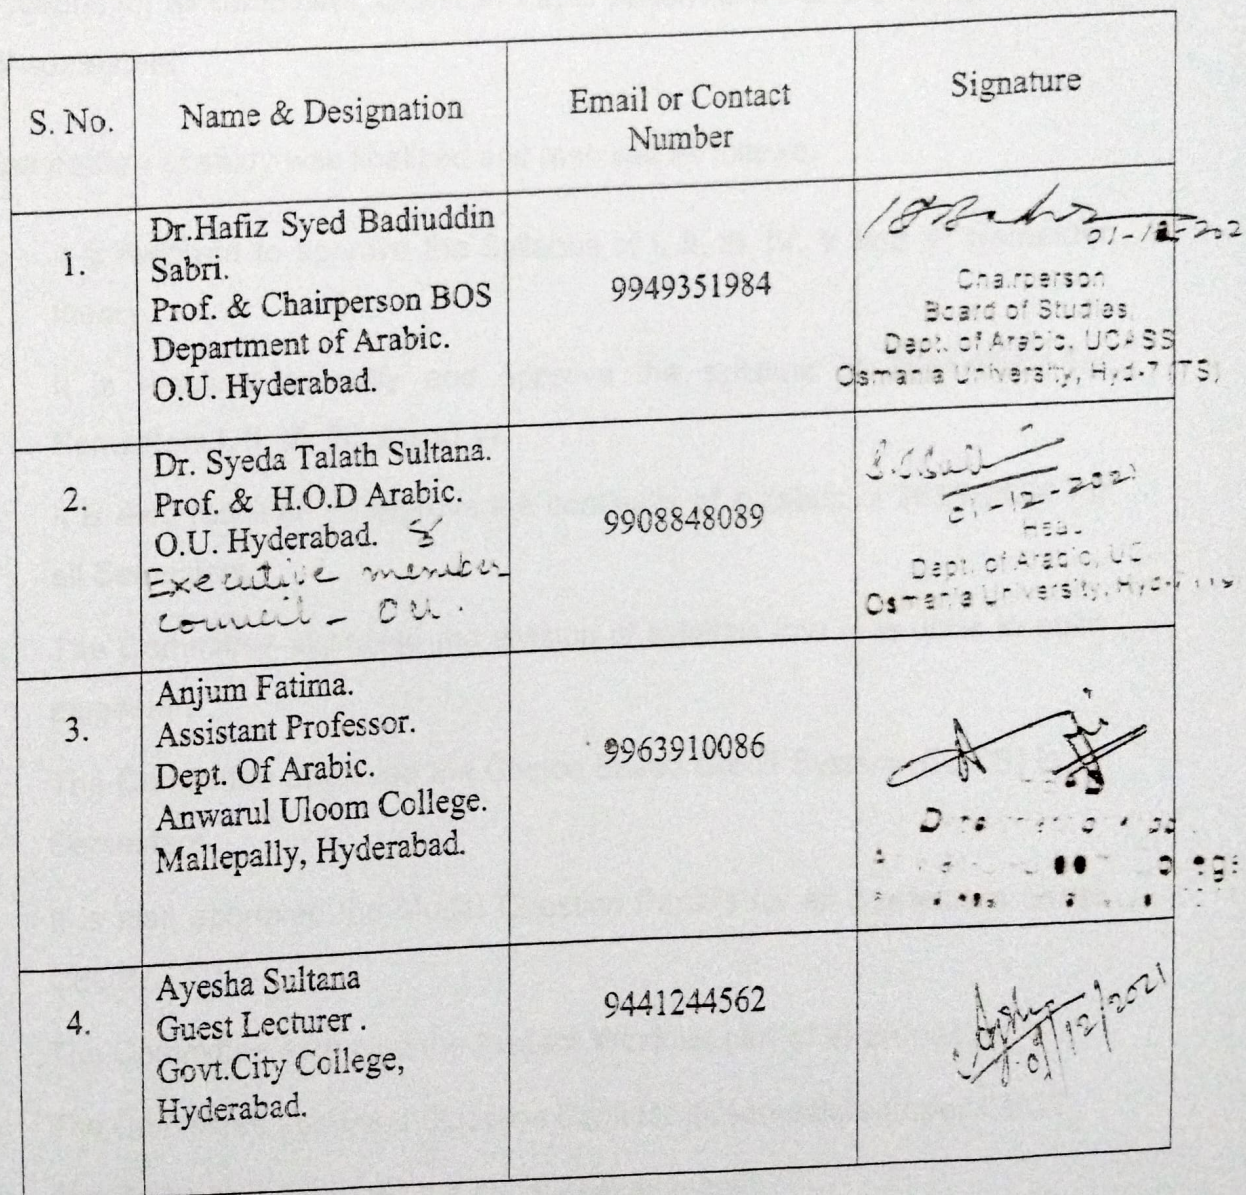 S. No.
Name & Designation
Email or Contact
Number
Signature
1.
Dr.Hafiz Syed Badiuddin
Sabri.
Prof. & Chairperson BOS
Department of Arabic.
O.U. Hyderabad.
9949351984
01-12-202
Chairperson
Board of Studies,
Dept. of Arabic, UCASS
Osmania University, Hyd-7 (TS)
2.
Dr. Syeda Talath Sultana.
Prof. & H.O.D Arabic.
O.U. Hyderabad. &
Executive member
council - OU.
9908848089
01-12-2021
Head
Dept. of Arabic, UC
Osmania University, Hyd-7
3.
Anjum Fatima.
Assistant Professor.
Dept. Of Arabic.
Anwarul Uloom College.
Mallepally, Hyderabad.
9963910086
4.
Ayesha Sultana
Guest Lecturer .
Govt.City College,
Hyderabad.
9441244562
01/12/2021